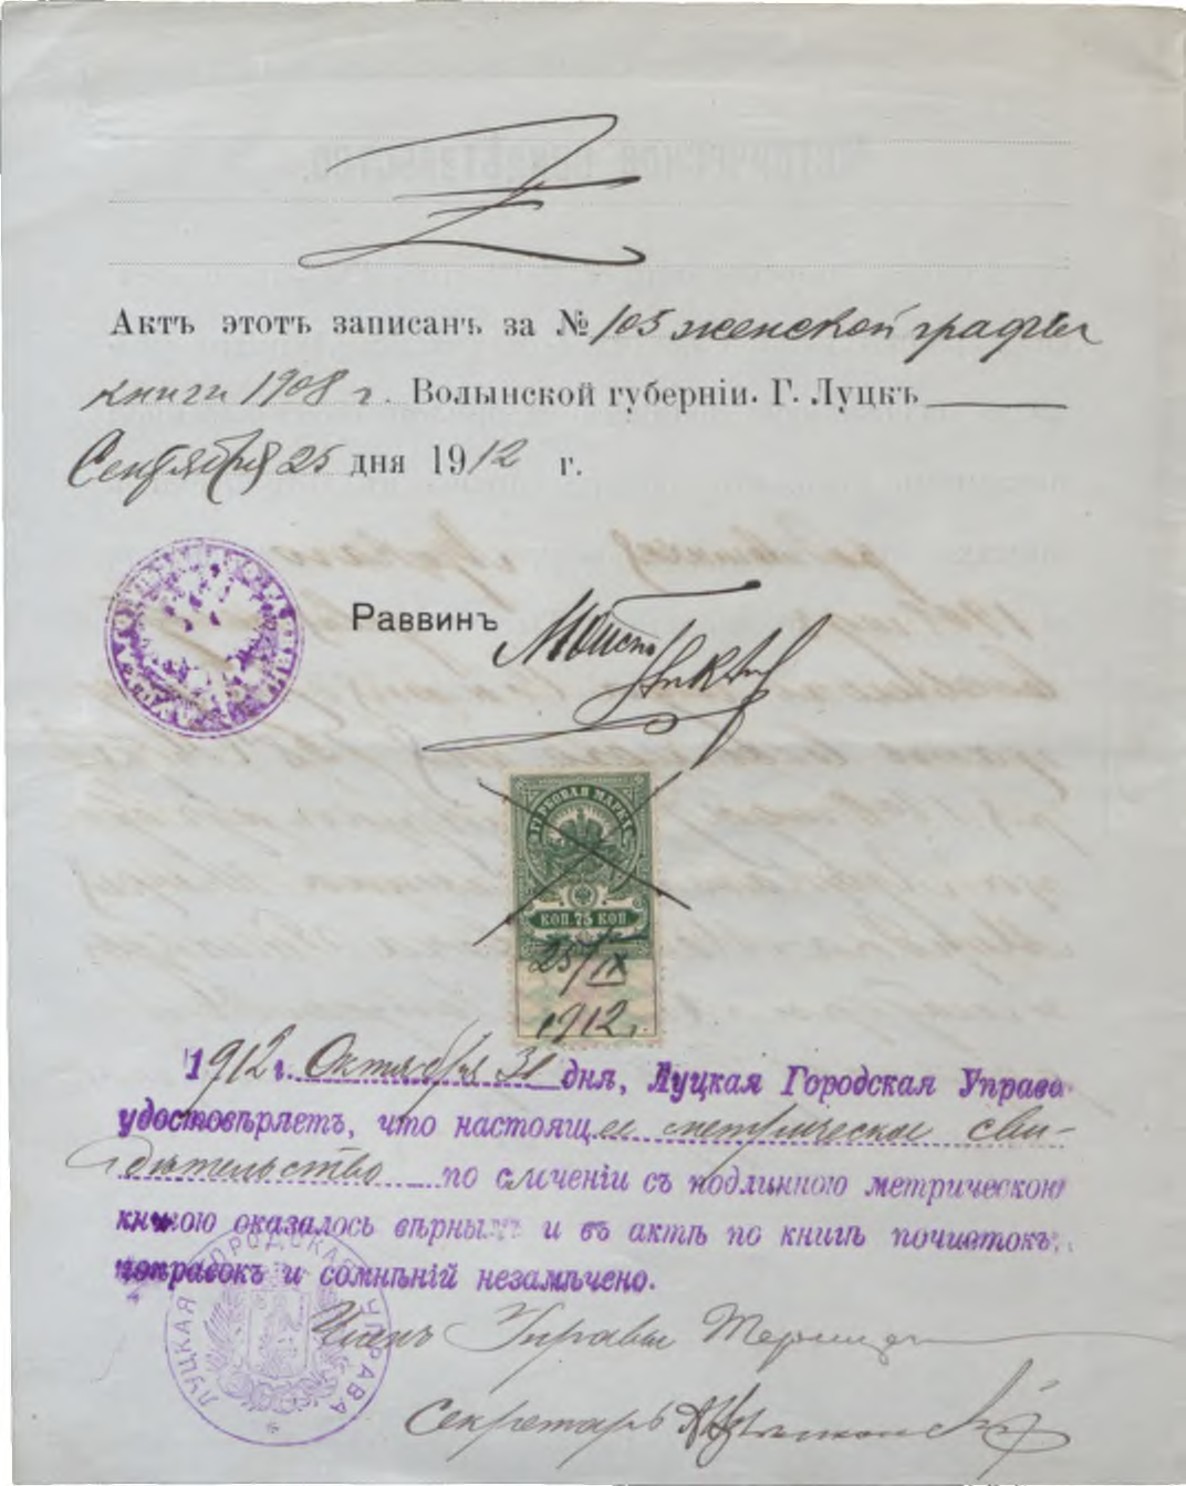 Актъ этотъ записанъ за № 105 женской графы
книги 1908 г. Волынской губерніи. Г. Луцкъ
Сентября 25 дня 1912 г.
Раввинъ
ГЕРБОВАЯ МАРКА
КОП. 75 КОП
25/IX
1912 г.
1912 г. Октября 31 дня, Луцкая Городская Управа
удостовѣряетъ, что настоящее метрическое сви-
дѣтельство по сличеніи съ подлинною метрическою
книгою оказалось вѣрнымъ и въ актѣ по книгѣ почистокъ,
поправокъ и сомнѣній незамѣчено.
ЛУЦКАЯ ГОРОДСКАЯ УПРАВА
Членъ Управы
Секретарь